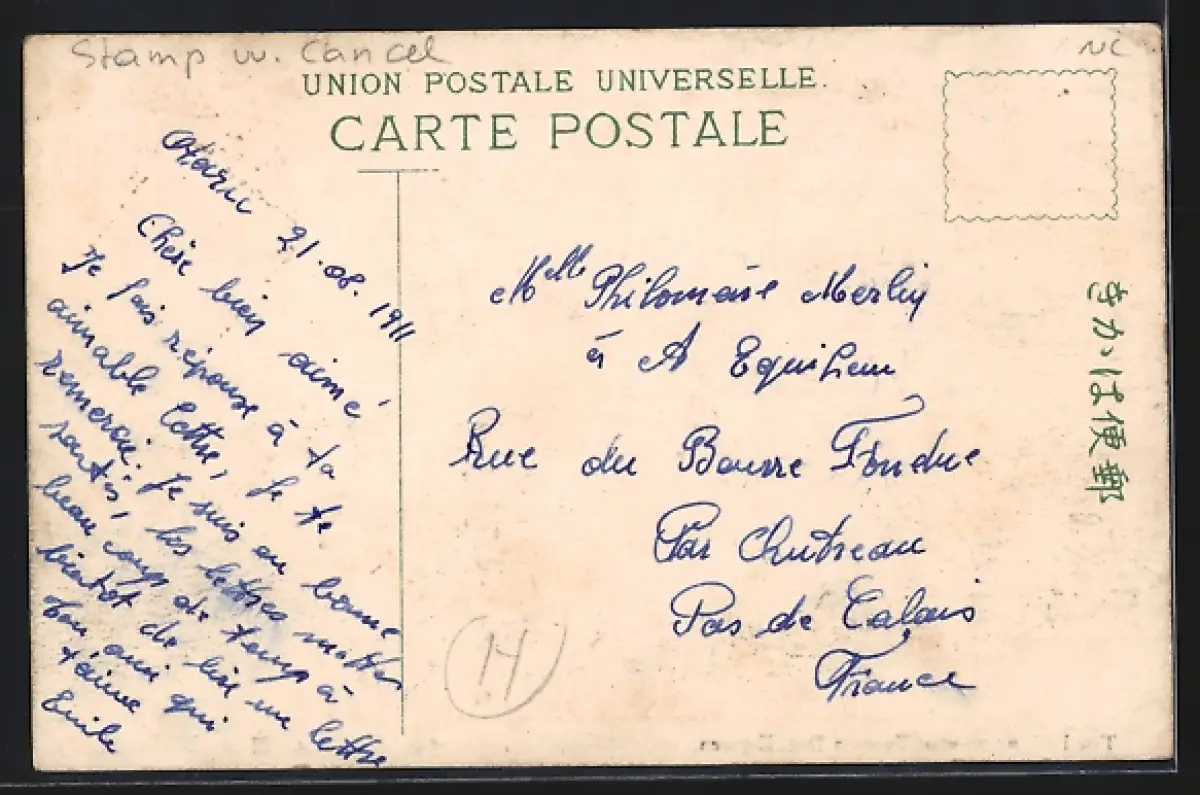 Stamp w. Cancel
NC
UNION POSTALE UNIVERSELLE.
CARTE POSTALE
21.08.1911
Chère bien aimé
Je fais réponse à ta
aimable lettre, je te
remercie. Je suis en bonne
santés, les lettres mettes
beaucoup de temps à
bientôt de lire une lettre
ton ami qui
t'aime
Emile
Mlle Philomène Merlin
à
Equihen
Rue du Beurre Fondue
Par Outreau
Pas de Calais
France
きかは便郵